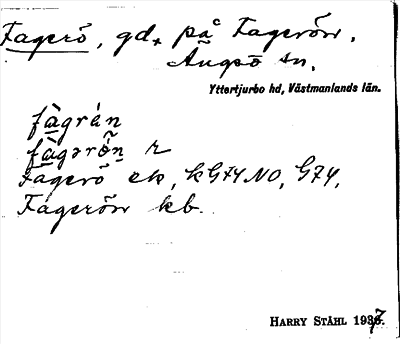 Fagerö, gd. på Fagerön.
Ängsö sn.
Yttertjurbo hd, Västmanlands län.
fàgrán
fàgərö̀n r
Fagerö ek, kG74NO, G74.
Fagerön kb.
HARRY STÅHL 1937.